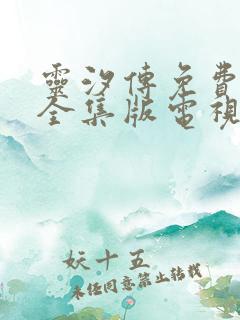 靈汐傳免費
全集版電視
妖十五
未經同意禁止轉載